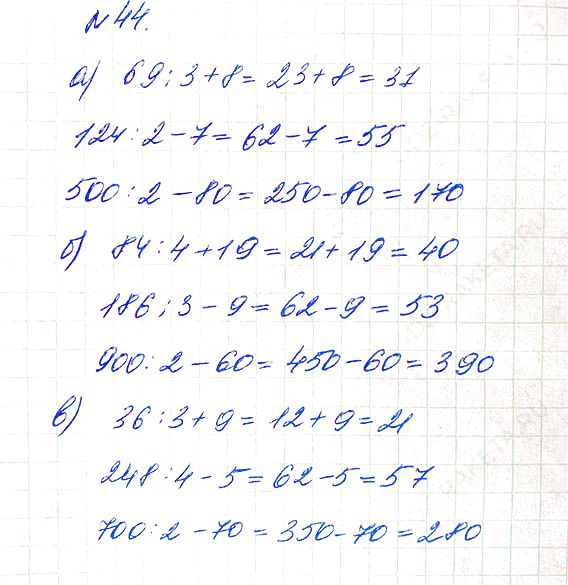 № 44.
а) 69 : 3 + 8 = 23 + 8 = 31
124 : 2 - 7 = 62 - 7 = 55
500 : 2 - 80 = 250 - 80 = 170
б) 84 : 4 + 19 = 21 + 19 = 40
186 : 3 - 9 = 62 - 9 = 53
900 : 2 - 60 = 450 - 60 = 390
в) 36 : 3 + 9 = 12 + 9 = 21
248 : 4 - 5 = 62 - 5 = 57
700 : 2 - 70 = 350 - 70 = 280